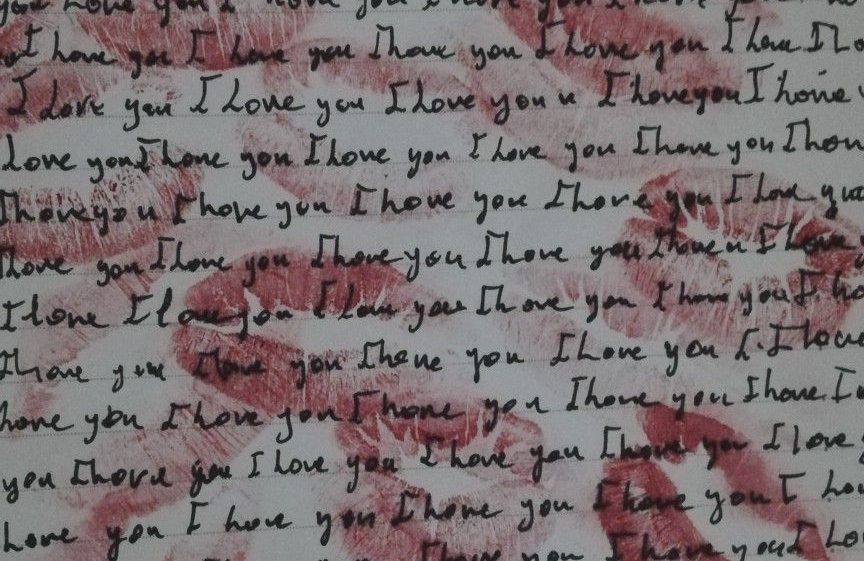 you I love you I love you I love you I love you
I love you I love you I love you I love you I love I lo
I Love you I Love you I Love you u I love you I love
Love you I love you I love you I love you I love you I lov
I love you u I love you I love you I love you I love you
I love you I love you I love you I love you I love u I love
I love I love you I love you I love you I love you I lo
I love you I love you I love you I love you I. I love
love you I love you I love you I love you I love I
you I love you I love you I love you I love you I love
Love you I love you I love you I love you I Lov
I love you I love you I Lo